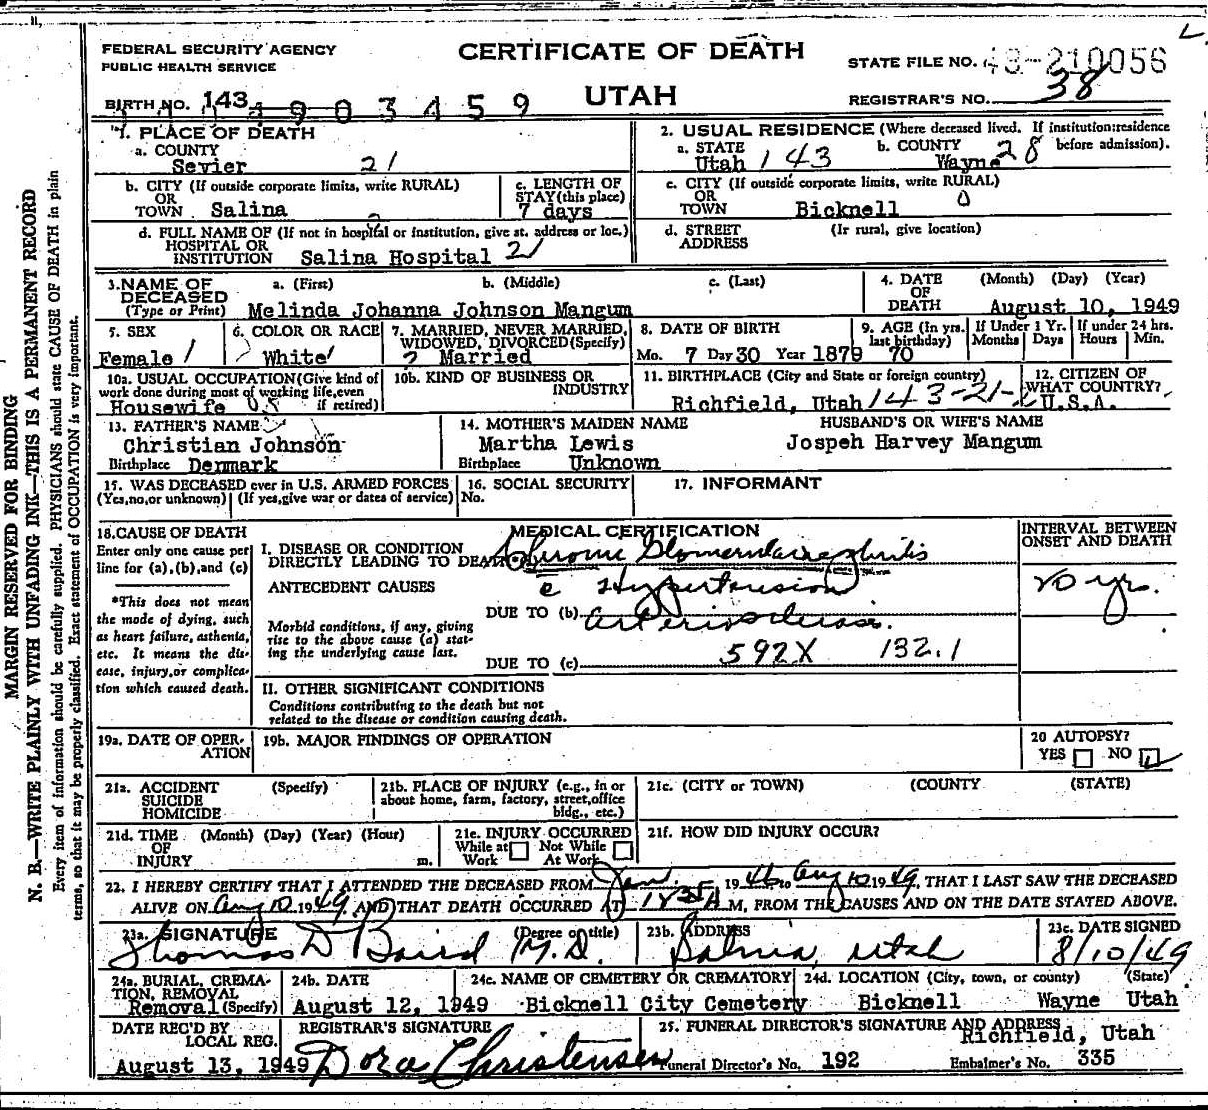 FEDERAL SECURITY AGENCY
PUBLIC HEALTH SERVICE
CERTIFICATE OF DEATH
UTAH
STATE FILE NO. 49-210056
REGISTRAR'S NO. 38
BIRTH NO. 143
1. PLACE OF DEATH
a. COUNTY
Sevier 21
b. CITY (If outside corporate limits, write RURAL)
OR
TOWN Salina
c. LENGTH OF
STAY (this place)
7 days
d. FULL NAME OF (If not in hospital or institution, give st. address or loc.)
HOSPITAL OR
INSTITUTION Salina Hospital 21
2. USUAL RESIDENCE (Where deceased lived. If institution:residence
before admission).
a. STATE
Utah 143
b. COUNTY
Wayne 28
c. CITY (If outside corporate limits, write RURAL)
OR
TOWN Bicknell 0
d. STREET (Ir rural, give location)
ADDRESS
3. NAME OF
DECEASED
(Type or Print)
a. (First) b. (Middle) c. (Last)
Melinda Johanna Johnson Mangum
4. DATE (Month) (Day) (Year)
OF
DEATH August 10, 1949
5. SEX
Female 1
6. COLOR OR RACE
White
7. MARRIED, NEVER MARRIED,
WIDOWED, DIVORCED (Specify)
2 Married
8. DATE OF BIRTH
Mo. 7 Day 30 Year 1879
9. AGE (In yrs.
last birthday)
70
If Under 1 Yr.
Months Days
If under 24 hrs.
Hours Min.
10a. USUAL OCCUPATION (Give kind of
work done during most of working life, even
if retired)
Housewife
10b. KIND OF BUSINESS OR
INDUSTRY
11. BIRTHPLACE (City and State or foreign country)
Richfield, Utah 143-21-
12. CITIZEN OF
WHAT COUNTRY?
U.S.A.
13. FATHER'S NAME
Christian Johnson
Birthplace Denmark
14. MOTHER'S MAIDEN NAME
Martha Lewis
Birthplace Unknown
HUSBAND'S OR WIFE'S NAME
Jospeh Harvey Mangum
15. WAS DECEASED ever in U.S. ARMED FORCES
(Yes,no,or unknown) (If yes,give war or dates of service)
16. SOCIAL SECURITY
No.
17. INFORMANT
18. CAUSE OF DEATH
Enter only one cause per
line for (a),(b),and (c)
*This does not mean
the mode of dying, such
as heart failure, asthenia,
etc. It means the dis-
ease, injury,or complica-
tion which caused death.
MEDICAL CERTIFICATION
I. DISEASE OR CONDITION
DIRECTLY LEADING TO DEATH Chronic Glomerulonephritis
ANTECEDENT CAUSES c Hypertension
DUE TO (b) arteriosclerosis.
Morbid conditions, if any, giving
rise to the above cause (a) stat-
ing the underlying cause last.
DUE TO (c) 592X 132.1
II. OTHER SIGNIFICANT CONDITIONS
Conditions contributing to the death but not
related to the disease or condition causing death.
INTERVAL BETWEEN
ONSET AND DEATH
yrs.
19a. DATE OF OPER-
ATION
19b. MAJOR FINDINGS OF OPERATION
20 AUTOPSY?
YES NO
21a. ACCIDENT (Specify)
SUICIDE
HOMICIDE
21b. PLACE OF INJURY (e.g., in or
about home, farm, factory, street,office
bldg., etc.)
21c. (CITY or TOWN) (COUNTY) (STATE)
21d. TIME (Month) (Day) (Year) (Hour)
OF
INJURY m.
21e. INJURY OCCURRED
While at Not While
Work At Work
21f. HOW DID INJURY OCCUR?
22. I HEREBY CERTIFY THAT I ATTENDED THE DECEASED FROM Jan. 1946 to Aug 10 1949, THAT I LAST SAW THE DECEASED
ALIVE ON Aug 10 1949, AND THAT DEATH OCCURRED AT M, FROM THE CAUSES AND ON THE DATE STATED ABOVE.
23a. SIGNATURE (Degree or title)
Thomas D Baird M.D.
23b. ADDRESS
Salina, Utah
23c. DATE SIGNED
8/10/49
24a. BURIAL, CREMA-
TION, REMOVAL
Removal (Specify)
24b. DATE
August 12, 1949
24c. NAME OF CEMETERY OR CREMATORY
Bicknell City Cemetery
24d. LOCATION (City, town, or county) (State)
Bicknell Wayne Utah
DATE REC'D BY
LOCAL REG.
August 13, 1949
REGISTRAR'S SIGNATURE
Dora Christensen
25. FUNERAL DIRECTOR'S SIGNATURE AND ADDRESS
Richfield, Utah
Funeral Director's No. 192 Embalmer's No. 335
MARGIN RESERVED FOR BINDING
N. B.—WRITE PLAINLY WITH UNFADING INK—THIS IS A PERMANENT RECORD
Every item of information should be carefully supplied. PHYSICIANS should state CAUSE OF DEATH in plain
terms, so that it may be properly classified. Exact statement of OCCUPATION is very important.